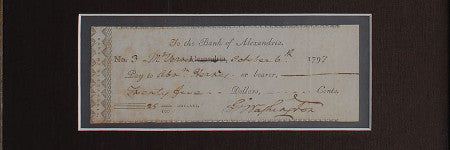 To the Bank of Alexandria.
No. 3 Mt Vernon Alexandria, October 6th 1797
Pay to , or bearer,
Twenty five Dollars, Cents.
25 DOLLARS,
100
Go Washington